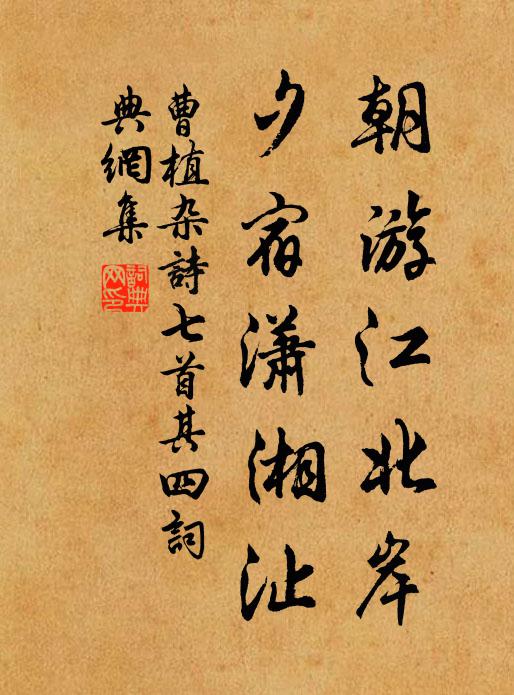 朝游江北岸
夕宿瀟湘沚
曹植杂詩七首其四詞
典網集
詞典网印